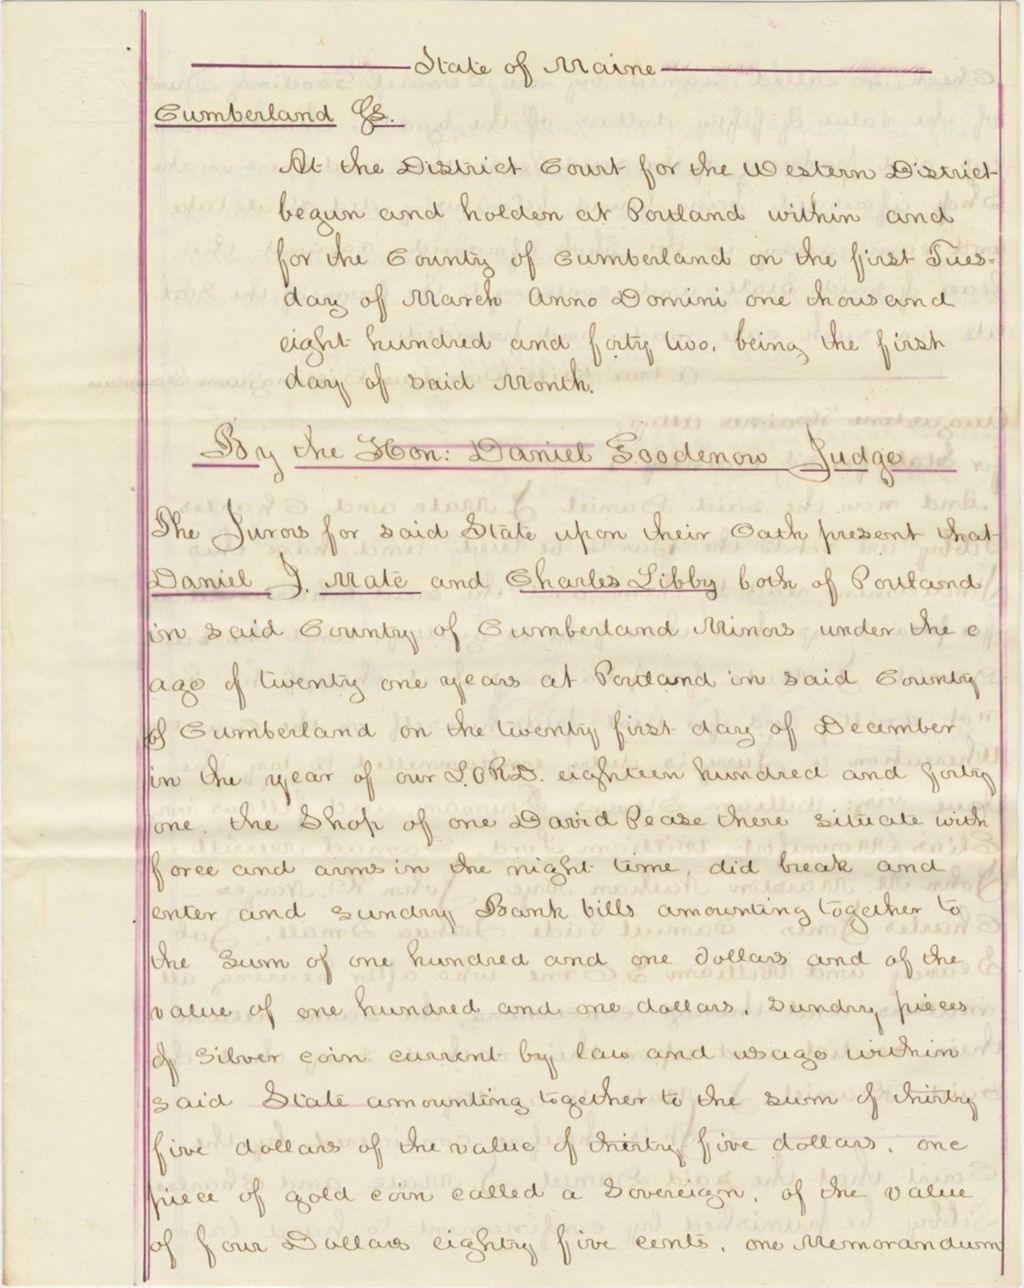 State of Maine
Cumberland Ss.
At the District Court for the Western District
begun and holden at Portland within and
for the County of Cumberland on the first Tues=
day of March Anno Domini one thousand
eight hundred and forty two, being the first
day of said Month.
By the Hon: Daniel Goodenow Judge
The Jurors for said State upon their Oath present that
Daniel J. Mate and Charles Libby both of Portland
in said County of Cumberland Minors under the
age of twenty one years at Portland in said County
of Cumberland on the twenty first day of December
in the year of our LORD. eighteen hundred and forty
one. the Shop of one David Pease there situate with
force and arms in the night time, did break and
enter and sundry Bank bills amounting together to
the Sum of one hundred and one dollars and of the
value of one hundred and one dollars, Sundry pieces
of Silver coin current by law and usage within
said State amounting together to the sum of thirty
five dollars of the value of thirty five dollars, one
piece of gold coin called a Sovereign, of the value
of four Dollars eighty five cents, one Memorandum